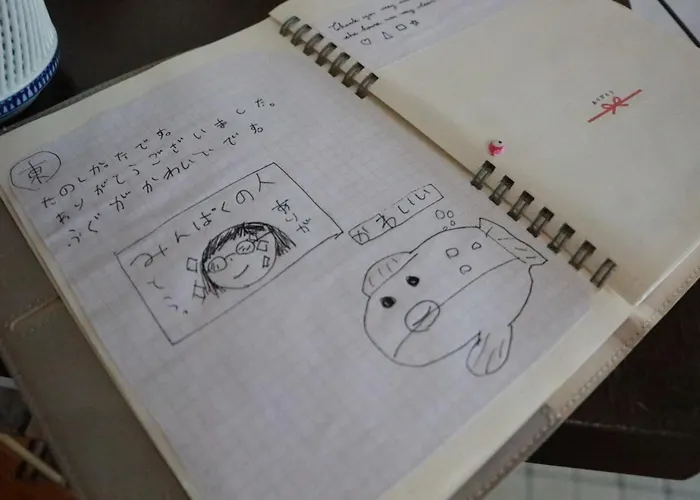 東
たのしかたです。
ありがとうございました。
ふぐがかわいいです。
みんぱくの人
ありが
とう。
かわいい
Thank you very